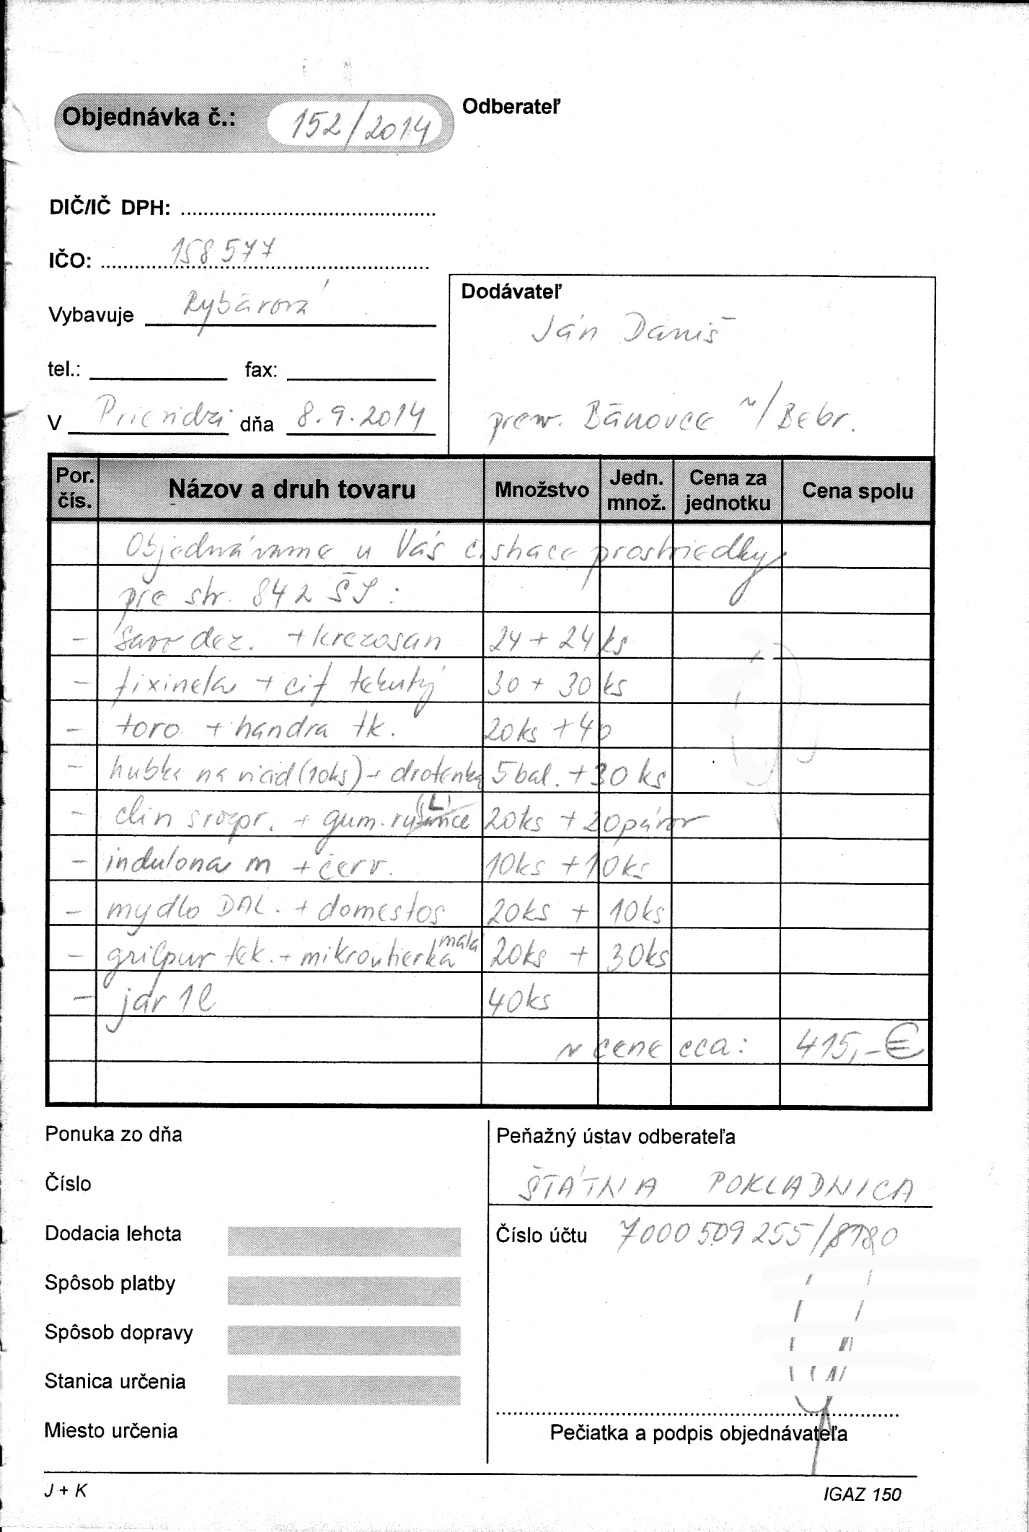 Objednávka č.: 152/2014
Odberateľ
DIČ/IČ DPH:
IČO: 158577
Vybavuje Rybárová
tel.: fax:
V Prievidzi dňa 8.9.2014
Dodávateľ
Ján Daniš
prev. Bánovce n/Bebr.
Por. čís. Názov a druh tovaru Množstvo Jedn. množ. Cena za jednotku Cena spolu
Objednávame u Vás čistiace prostriedky
pre str. 842 ŠJ:
- Savo dez. + krezosan 24 + 24 ks
- fixinela + cif tekutý 30 + 30 ks
- toro + handra tk. 20ks + 40
- hubka na riad (10ks) + drôtenka 5 bal. + 30 ks
- clin srozpr. + gum. (L) 20ks + 20párov
- indulona m + červ. 10ks + 10ks
- mydlo DAL. + domestos 20ks + 10ks
- grilpur tek. + mikroutierka mala 20ks + 30ks
- jar 1l 40ks
v cene cca: 415,-€
Ponuka zo dňa
Číslo
Dodacia lehota
Spôsob platby
Spôsob dopravy
Stanica určenia
Miesto určenia
Peňažný ústav odberateľa
ŠTÁTNA POKLADNICA
Číslo účtu 7000509255/8180
Pečiatka a podpis objednávateľa
J + K
IGAZ 150